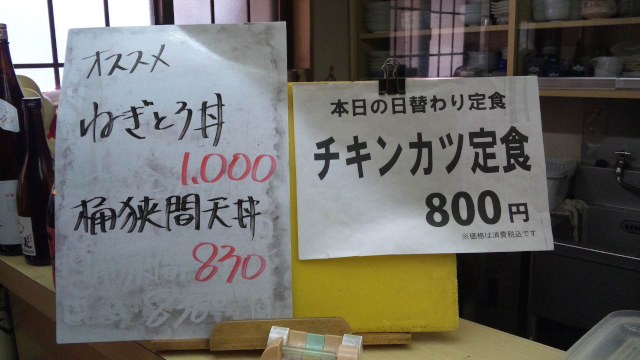 オススメ
ねぎとろ丼
1.000
桶狭間天丼
830
本日の日替わり定食
チキンカツ定食
800円
※価格は消費税込です